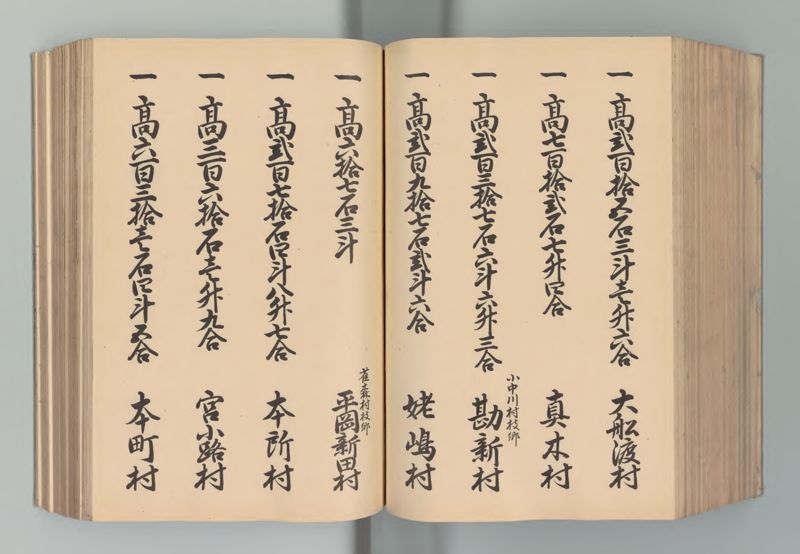 一 高弐百拾五石三斗壱升六合 大船渡村
一 高七百拾弐石七升四合 真木村
一 高弐百三拾七石六斗六升三合 小中川村枝郷 勘新村
一 高弐百九拾七石弐斗六合 姥嶋村
一 高六拾七石三斗 萑森村枝郷 平岡新田村
一 高弐百七拾石四斗八升七合 本所村
一 高三百六拾石壱升九合 宮小路村
一 高六百三拾壱石四斗五合 本町村